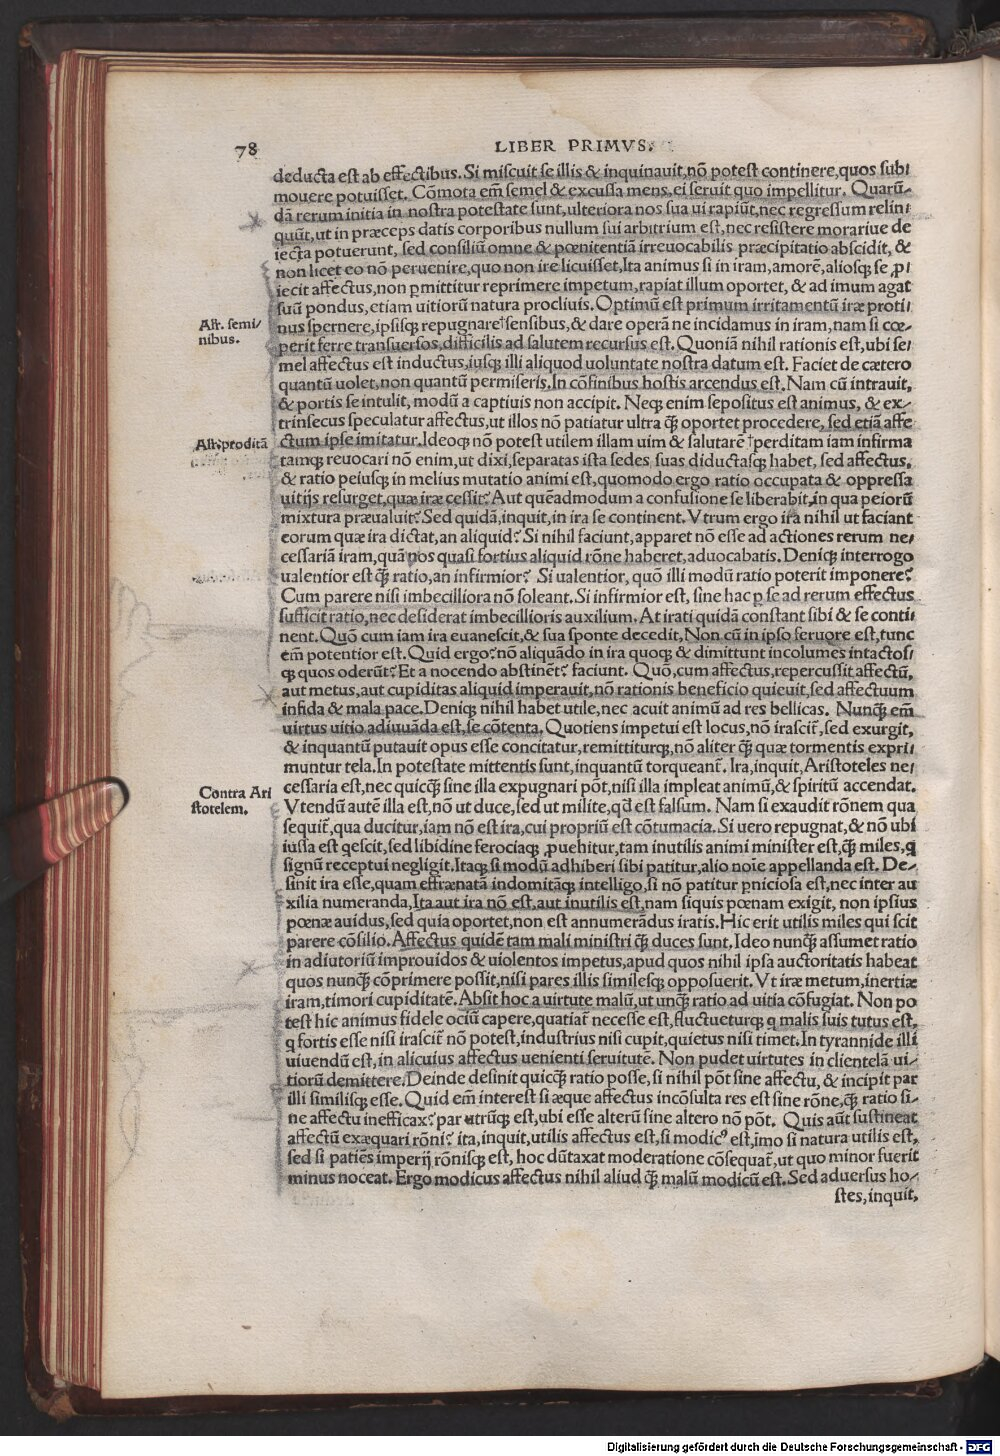 78
LIBER PRIMVS.
deducta est ab effectibus. Si miscuit se illis & inquinauit, nō potest continere, quos subi
mouere potuisset. Cōmota em̄ semel & excussa mens, ei seruit quo impellitur. Quarū-
dā rerum initia in nostra potestate sunt, ulteriora nos sua ui rapiūt, nec regressum relin-
quūt, ut in præceps datis corporibus nullum sui arbitrium est, nec resistere morariue de
iecta potuerunt, sed consiliū omne & pœnitentiā irreuocabilis præcipitatio abscidit, &
non licet eo nō peruenire, quo non ire licuisset, Ita animus si in iram, amorē, aliosq; se ,p-
iecit affectus, non p̱mittitur reprimere impetum, rapiat illum oportet, & ad imum agat
suū pondus, etiam uitiorū natura procliuis. Optimū est primum irritamentū iræ proti-
Ast. semi/
nibus.
nus spernere, ipsisq; repugnare †sensibus, & dare operā ne incidamus in iram, nam si cœ-
perit ferre transuersos, difficilis ad salutem recursus est. Quoniā nihil rationis est, ubi se-
mel affectus est inductus, iusq; illi aliquod uoluntate nostra datum est. Faciet de cætero
quantū uolet, non quantū permiseris, In cōfinibus hostis arcendus est. Nam cū intrauit,
& portis se intulit, modū a captiuis non accipit. Neq; enim sepositus est animus, & ex-
trinsecus speculatur affectus, ut illos nō patiatur ultra q̄ȝ oportet procedere, sed etiā affe
Ast. proditā
ctum ipse imitatur. Ideoq; nō potest utilem illam uim & salutarē †perditam iam infirma
tamq; reuocari nō enim, ut dixi, separatas ista sedes, suas diductasq; habet, sed affectus,
& ratio peiusq; in melius mutatio animi est, quomodo ergo ratio occupata & oppressa
uitijs resurget, quæ iræ cessit? Aut quēadmodum a confusione se liberabit, in qua peiorū
mixtura præualuit? Sed quidā, inquit, in ira se continent. Vtrum ergo ita nihil ut faciant
eorum quæ ira dictat, an aliquid? Si nihil faciunt, apparet nō esse ad actiones rerum ne-
cessariā iram, quā uos quasi fortius aliquid rōne haberet, aduocabatis. Deniq; interrogo
ualentior est q̄ȝ ratio, an infirmior? Si ualentior, quō illi modū ratio poterit imponere?
Cum parere nisi imbecilliora nō soleant. Si infirmior est, sine hac p̱ se ad rerum effectus
sufficit ratio, nec desiderat imbecillioris auxilium. At irati quidā constant sibi & se conti-
nent. Quō cum iam ira euanescit, & sua sponte decedit, Non cū in ipso feruore est, tunc
em̄ potentior est. Quid ergo? nō aliquādo in ira quoq; & dimittunt incolumes intactos-
q; quos oderūt? Et a nocendo abstinēt? faciunt. Quō, cum affectus, repercussit affectū,
aut metus, aut cupiditas aliquid imperauit, nō rationis beneficio quieuit, sed affectuum
infida & mala pace. Deniq; nihil habet utile, nec acuit animū ad res bellicas. Nunq̄ȝ em̄
uirtus uitio adiuuāda est, se cōtenta. Quotiens impetui est locus, nō irascit̄, sed exurgit,
& inquantū putauit opus esse concitatur, remittiturq;, nō aliter q̄ȝ quæ tormentis expri-
muntur tela. In potestate mittentis sunt, inquantū torqueant̄. Ira, inquit, Aristoteles ne-
Contra Ari
stotelem.
cessaria est, nec quicq̄ȝ sine illa expugnari pōt, nisi illa impleat animū, & spiritū accendat.
Vtendū autē illa est, nō ut duce, sed ut milite, qd̄ est falsum. Nam si exaudit rōnem qua
sequit̄, qua ducitur, iam nō est ira, cui propriū est cōtumacia. Si uero repugnat, & nō ubi
iussa est q̇escit, sed libidine ferociaq; ,puehitur, tam inutilis animi minister est, q̄ȝ miles, q̇
signū receptui negligit. Itaq; si modū adhiberi sibi patitur, alio noīe appellanda est. De-
sinit ira esse, quam effrænatā indomitāq; intelligo, si nō patitur p̱niciosa est, nec inter au
xilia numeranda, Ita aut ira nō est, aut inutilis est, nam siquis pœnam exigit, non ipsius
pœnæ auidus, sed quia oportet, non est annumerādus iratis. Hic erit utilis miles qui scit
parere cōsilio. Affectus quidē tam mali ministri q̄ȝ duces sunt, Ideo nunq̄ȝ assumet ratio
in adiutoriū improuidos & uiolentos impetus, apud quos nihil ipsa auctoritatis habeat
quos nunq̄ȝ cōprimere possit, nisi pares illis similesq; opposuerit. Vt iræ metum, inertiæ
iram, timori cupiditatē. Absit hoc a uirtute malū, ut unq̄ȝ ratio ad uitia cōfugiat. Non po
test hic animus fidele ociū capere, quatiat̄ necesse est, fluctueturq; q malis suis tutus est,
q fortis esse nisi irascit̄ nō potest, industrius nisi cupit, quietus nisi timet. In tyrannide illi
uiuendū est, in alicuius affectus uenienti seruitutē. Non pudet uirtutes in clientelā ui-
tiorū demittere. Deinde desinit quicq̄ȝ ratio posse, si nihil pōt sine affectu, & incipit par
illi similisq; esse. Quid em̄ interest si æque affectus incōsulta res est sine rōne, q̄ȝ ratio si-
ne affectu inefficax? par utrūq; est, ubi esse alterū sine altero nō pōt. Quis aūt sustineat
affectū exæquari rōni? ita, inquit, utilis affectus est, si modicꝰ est, imo si natura utilis est,
sed si patiēs imperij rōnisq; est, hoc dūtaxat moderatione cōsequat̄, ut quo minor fuerit
minus noceat. Ergo modicus affectus nihil aliud q̄ȝ malū modicū est. Sed aduersus ho-
stes, inquit,
Digitalisierung gefördert durch die Deutsche Forschungsgemeinschaft - DFG